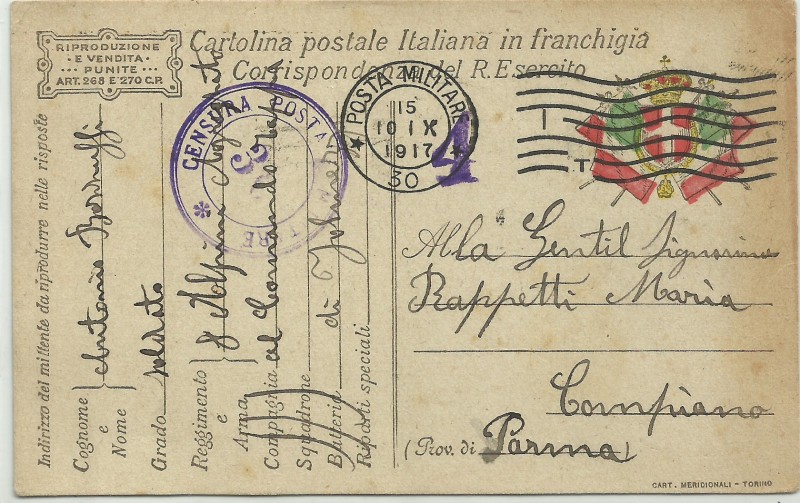 RIPRODUZIONE
E VENDITA
PUNITE
ART. 268 E 270 C.P.
Cartolina postale Italiana in franchigia
Corrispondenza del R. Esercito
POSTA MILITARE
15
10 IX
1917
30
4
CENSURA POSTA
3
Alla Gentil Signorina
Rappetti Maria
Compiano
(Prov. di Parma)
CART. MERIDIONALI - TORINO
Indirizzo del mittente da riprodurre nelle risposte
Cognome e Nome Antonio
Grado soldato
Reggimento e Arma 8 Alpini
Compagnia al Comando
Squadrone
Batteria di
Riparti speciali